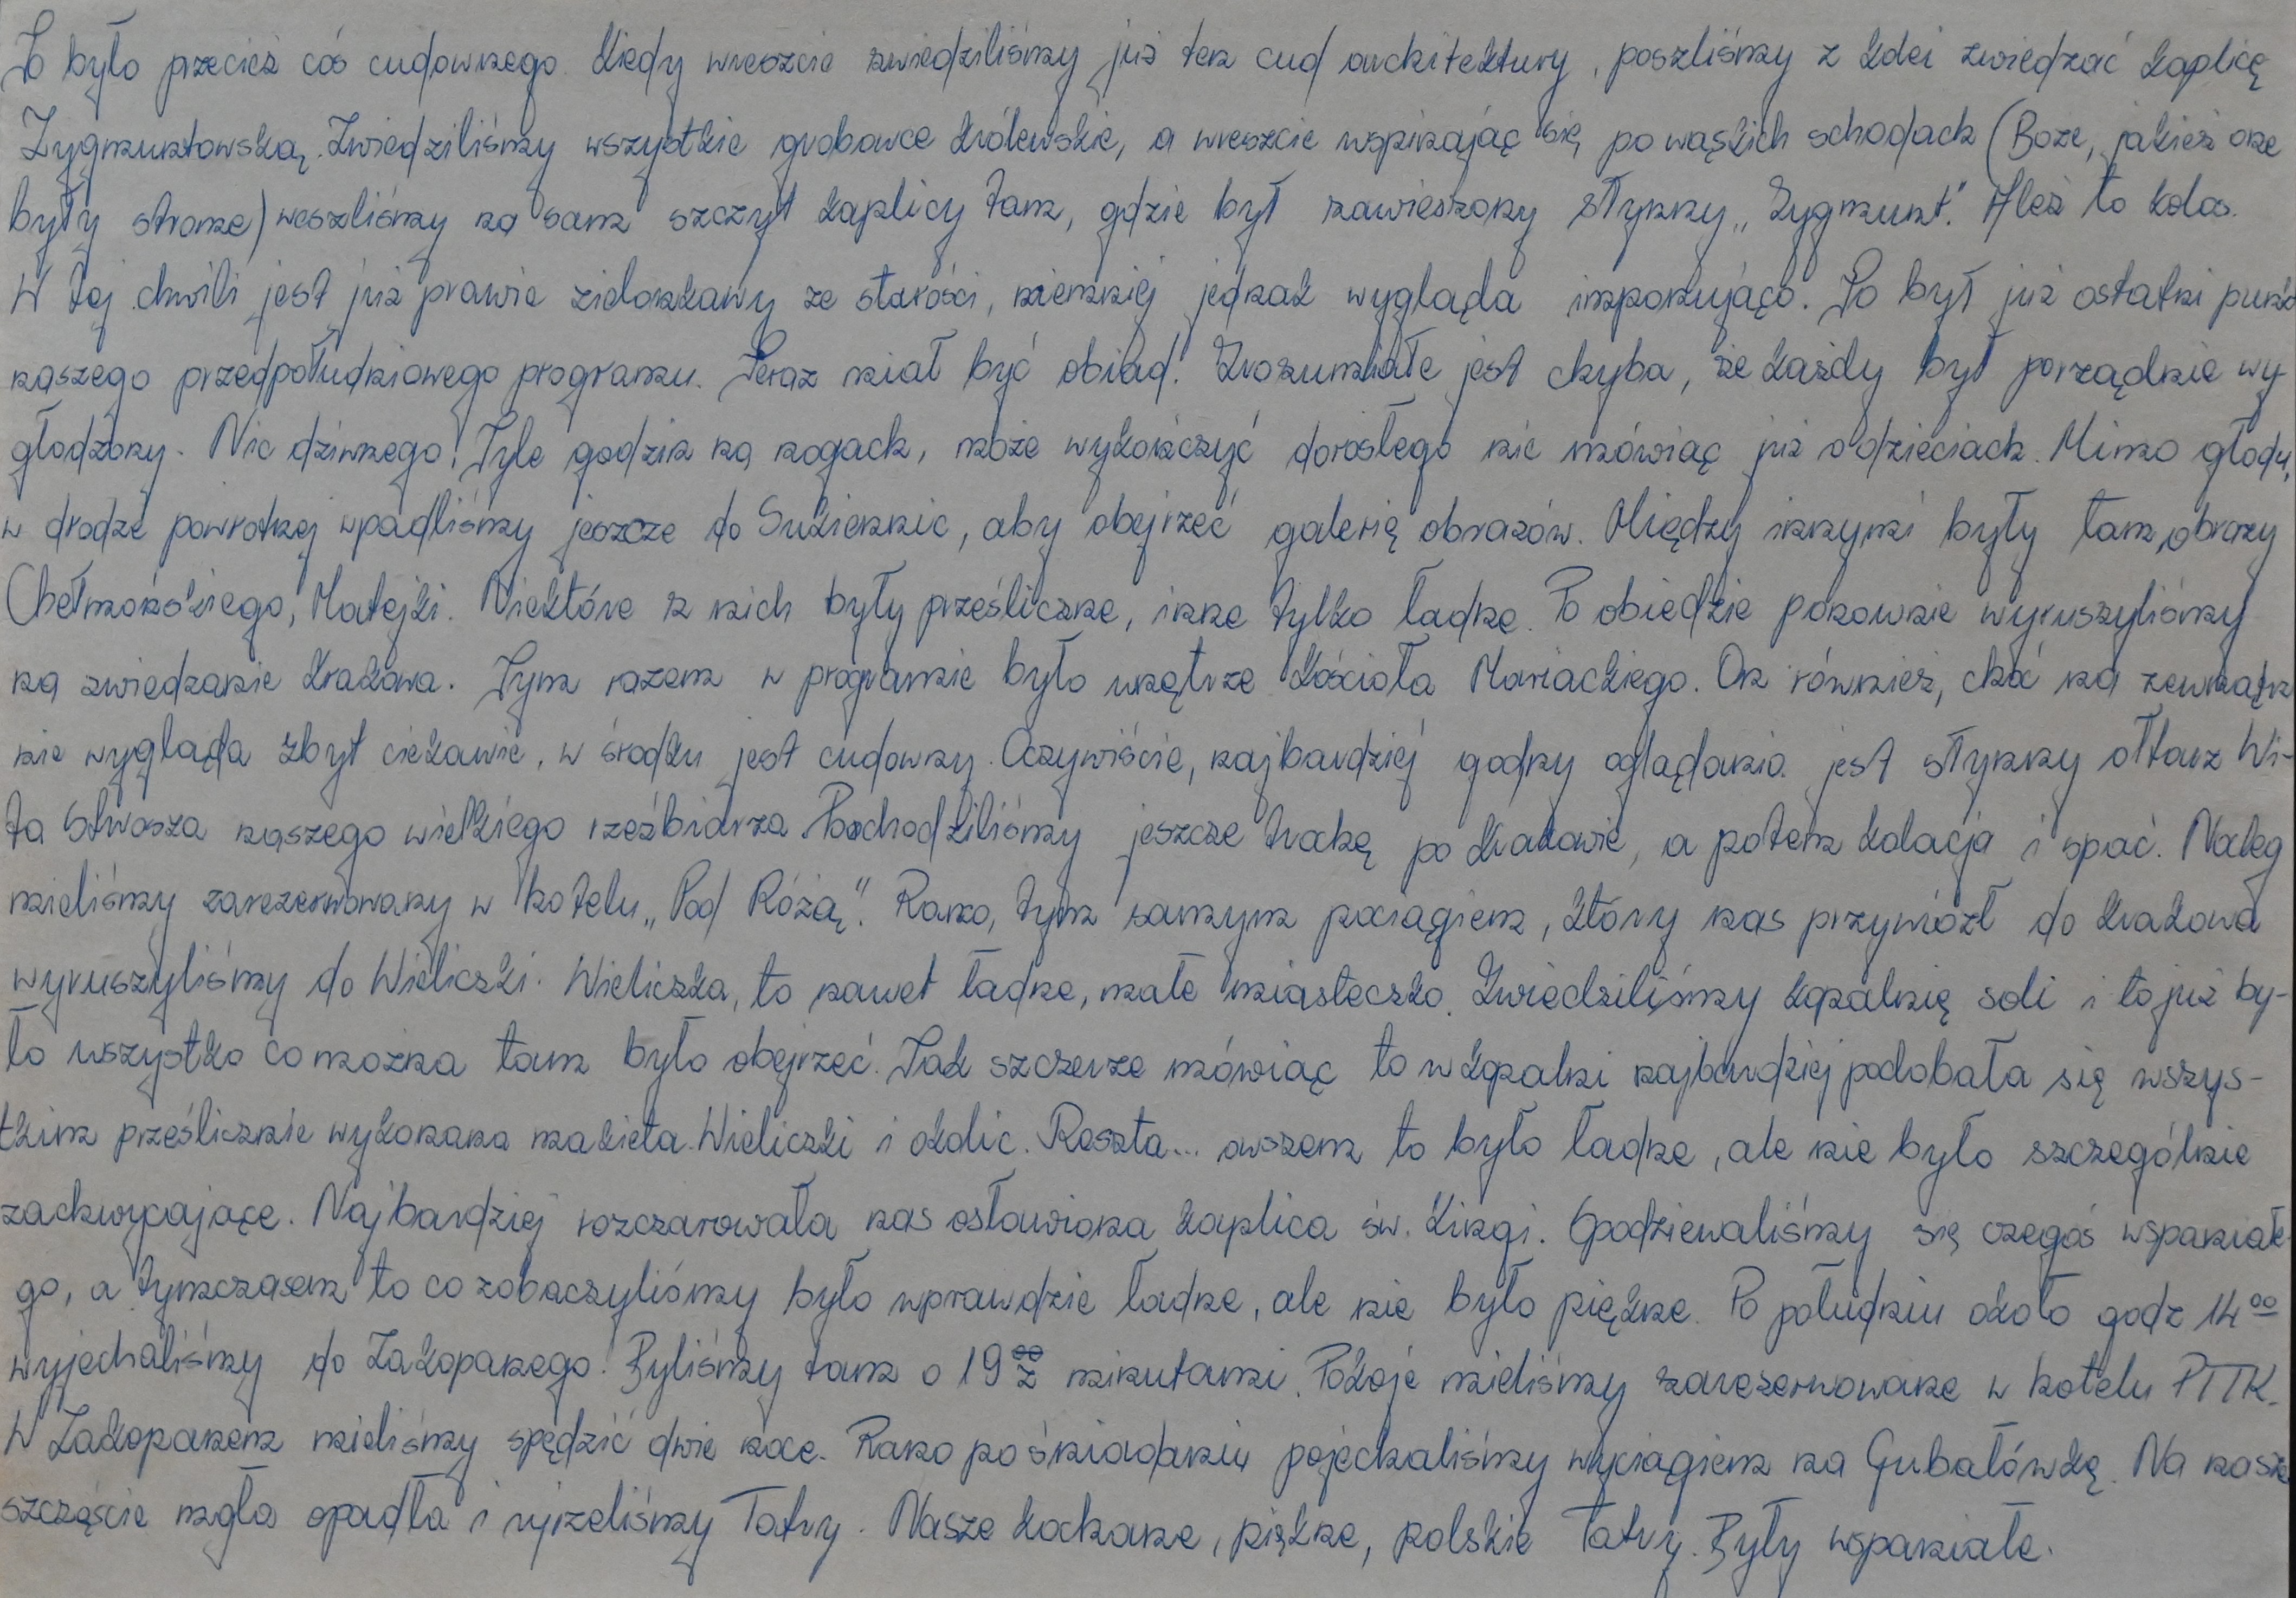 To było przecież coś cudownego. Kiedy wreszcie zwiedziliśmy już ten cud architektury, poszliśmy z kolei zwiedzać kaplicę
Zygmuntowską. Zwiedziliśmy wszystkie grobowce królewskie, a wreszcie wspinając się po wąskich schodach (Boże, jakież one
były strome) weszliśmy na sam szczyt kaplicy tam, gdzie był zawieszony słynny „Zygmunt". Ależ to kolos.
W tej chwili jest już prawie zielonkawy ze starości, niemniej jednak wygląda imponująco. To był już ostatni punkt
naszego przedpołudniowego programu. Teraz miał być obiad! Zrozumiałe jest chyba, że każdy był porządnie wy-
głodzony. Nic dziwnego! Tyle godzin na nogach, może wykończyć dorosłego nie mówiąc już o dzieciach. Mimo głodu,
w drodze powrotnej wpadliśmy jeszcze do Sukiennic, aby obejrzeć galerię obrazów. Między innymi były tam obrazy
Chełmońskiego, Matejki. Niektóre z nich były prześliczne, inne tylko ładne. Po obiedzie ponownie wyruszyliśmy
na zwiedzanie Krakowa. Tym razem w programie było wnętrze Kościoła Mariackiego. On również, choć na zewnątrz
nie wygląda zbyt ciekawie, w środku jest cudowny. Oczywiście, najbardziej godny oglądania jest słynny ołtarz Wi-
ta Stwosza naszego wielkiego rzeźbiarza. Pochodziliśmy jeszcze trochę po Krakowie, a potem kolacja i spać. Nocleg
mieliśmy zarezerwowany w hotelu „Pod Różą". Rano, tym samym pociągiem, który nas przywiózł do Krakowa
wyruszyliśmy do Wieliczki. Wieliczka, to nawet ładne, małe miasteczko. Zwiedziliśmy kopalnię soli i to już by-
ło wszystko co można tam było obejrzeć. Tak szczerze mówiąc to w kopalni najbardziej podobała się wszys-
tkim prześlicznie wykonana makieta Wieliczki i okolic. Reszta... owszem to było ładne, ale nie było szczególnie
zachwycające. Najbardziej rozczarowała nas osławiona kaplica św. Kingi. Spodziewaliśmy się czegoś wspaniałe-
go, a tymczasem to co zobaczyliśmy było wprawdzie ładne, ale nie było piękne. Po południu około godz 14⁰⁰
wyjechaliśmy do Zakopanego. Byliśmy tam o 19 z minutami. Pokoje mieliśmy zarezerwowane w hotelu PTTK.
W Zakopanem mieliśmy spędzić dwie noce. Rano po śniadaniu pojechaliśmy wyciągiem na Gubałówkę. Na nasze
szczęście mgła opadła i ujrzeliśmy Tatry. Nasze kochane, piękne, polskie Tatry. Były wspaniałe.